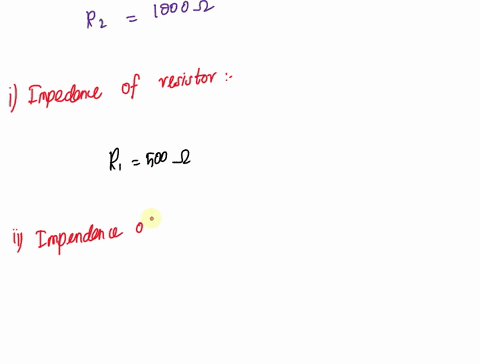 R₂ = 1000 Ω
i) Impedance of resistor :-
R₁ = 500 Ω
ii) Impendence o